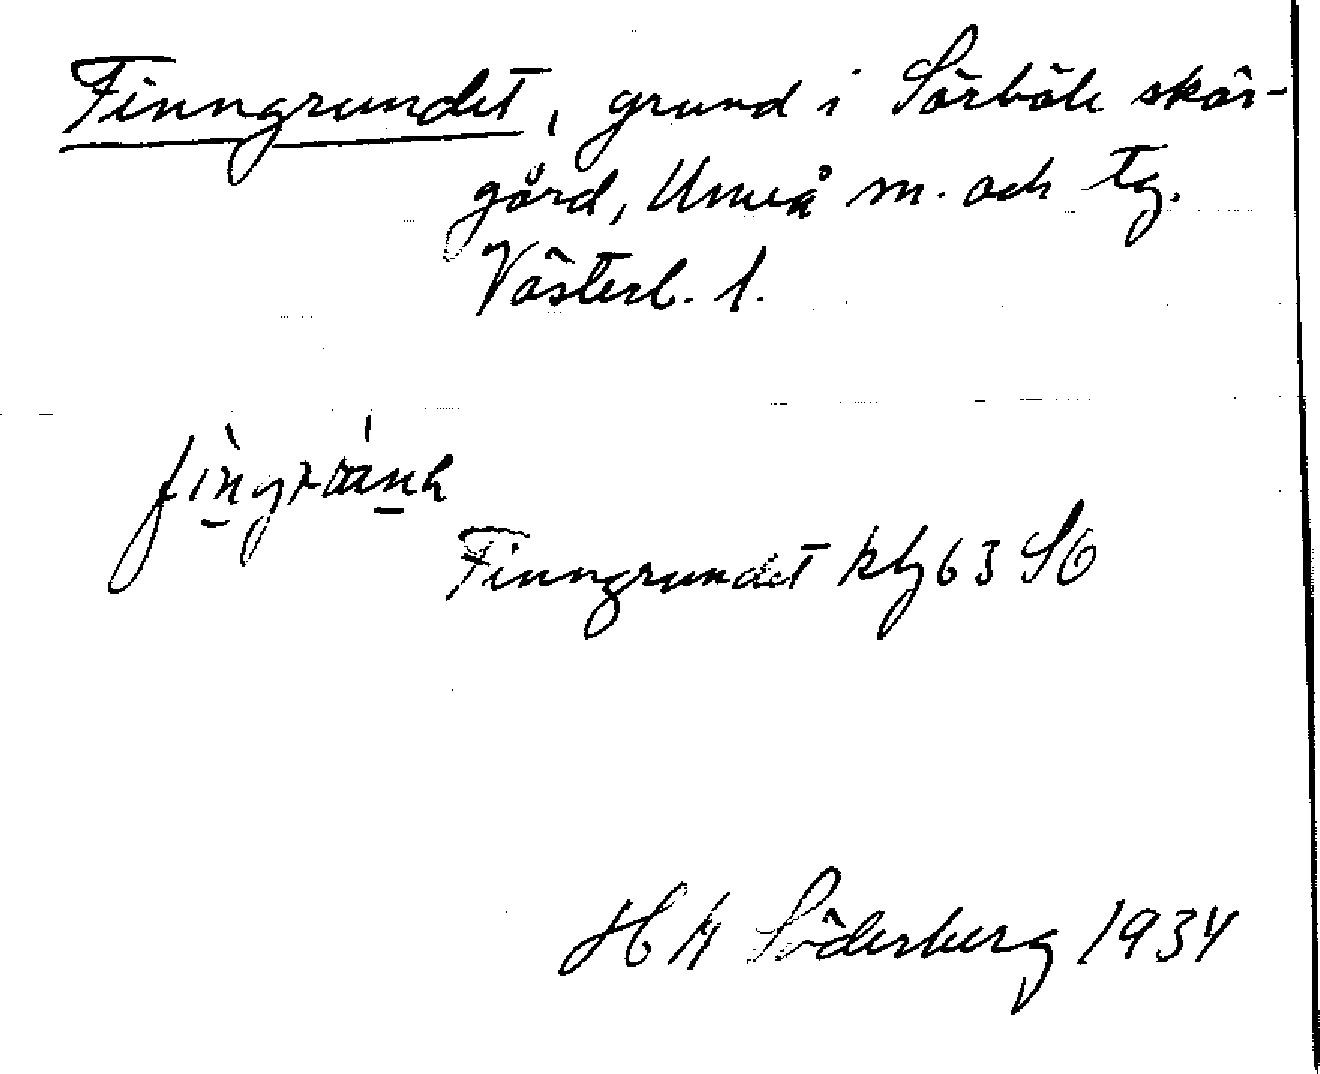 Finngrundet, grund i Sörböle skär-
gård, Umeå m. och tg.
Västerb. l.
Finngrundet kbg 63 SO
H Söderberg 1934